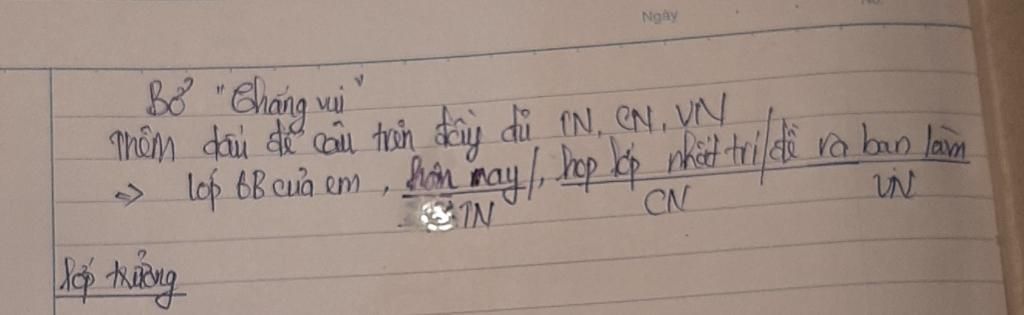 Ngày
Bỏ "Chẳng vui"
Thêm dấu để câu trên đầy đủ TN, CN, VN
=> lớp 6B của em, hôm nay/, họp lớp nhất trí/đề ra bạn làm
TN CN VN
lớp trưởng